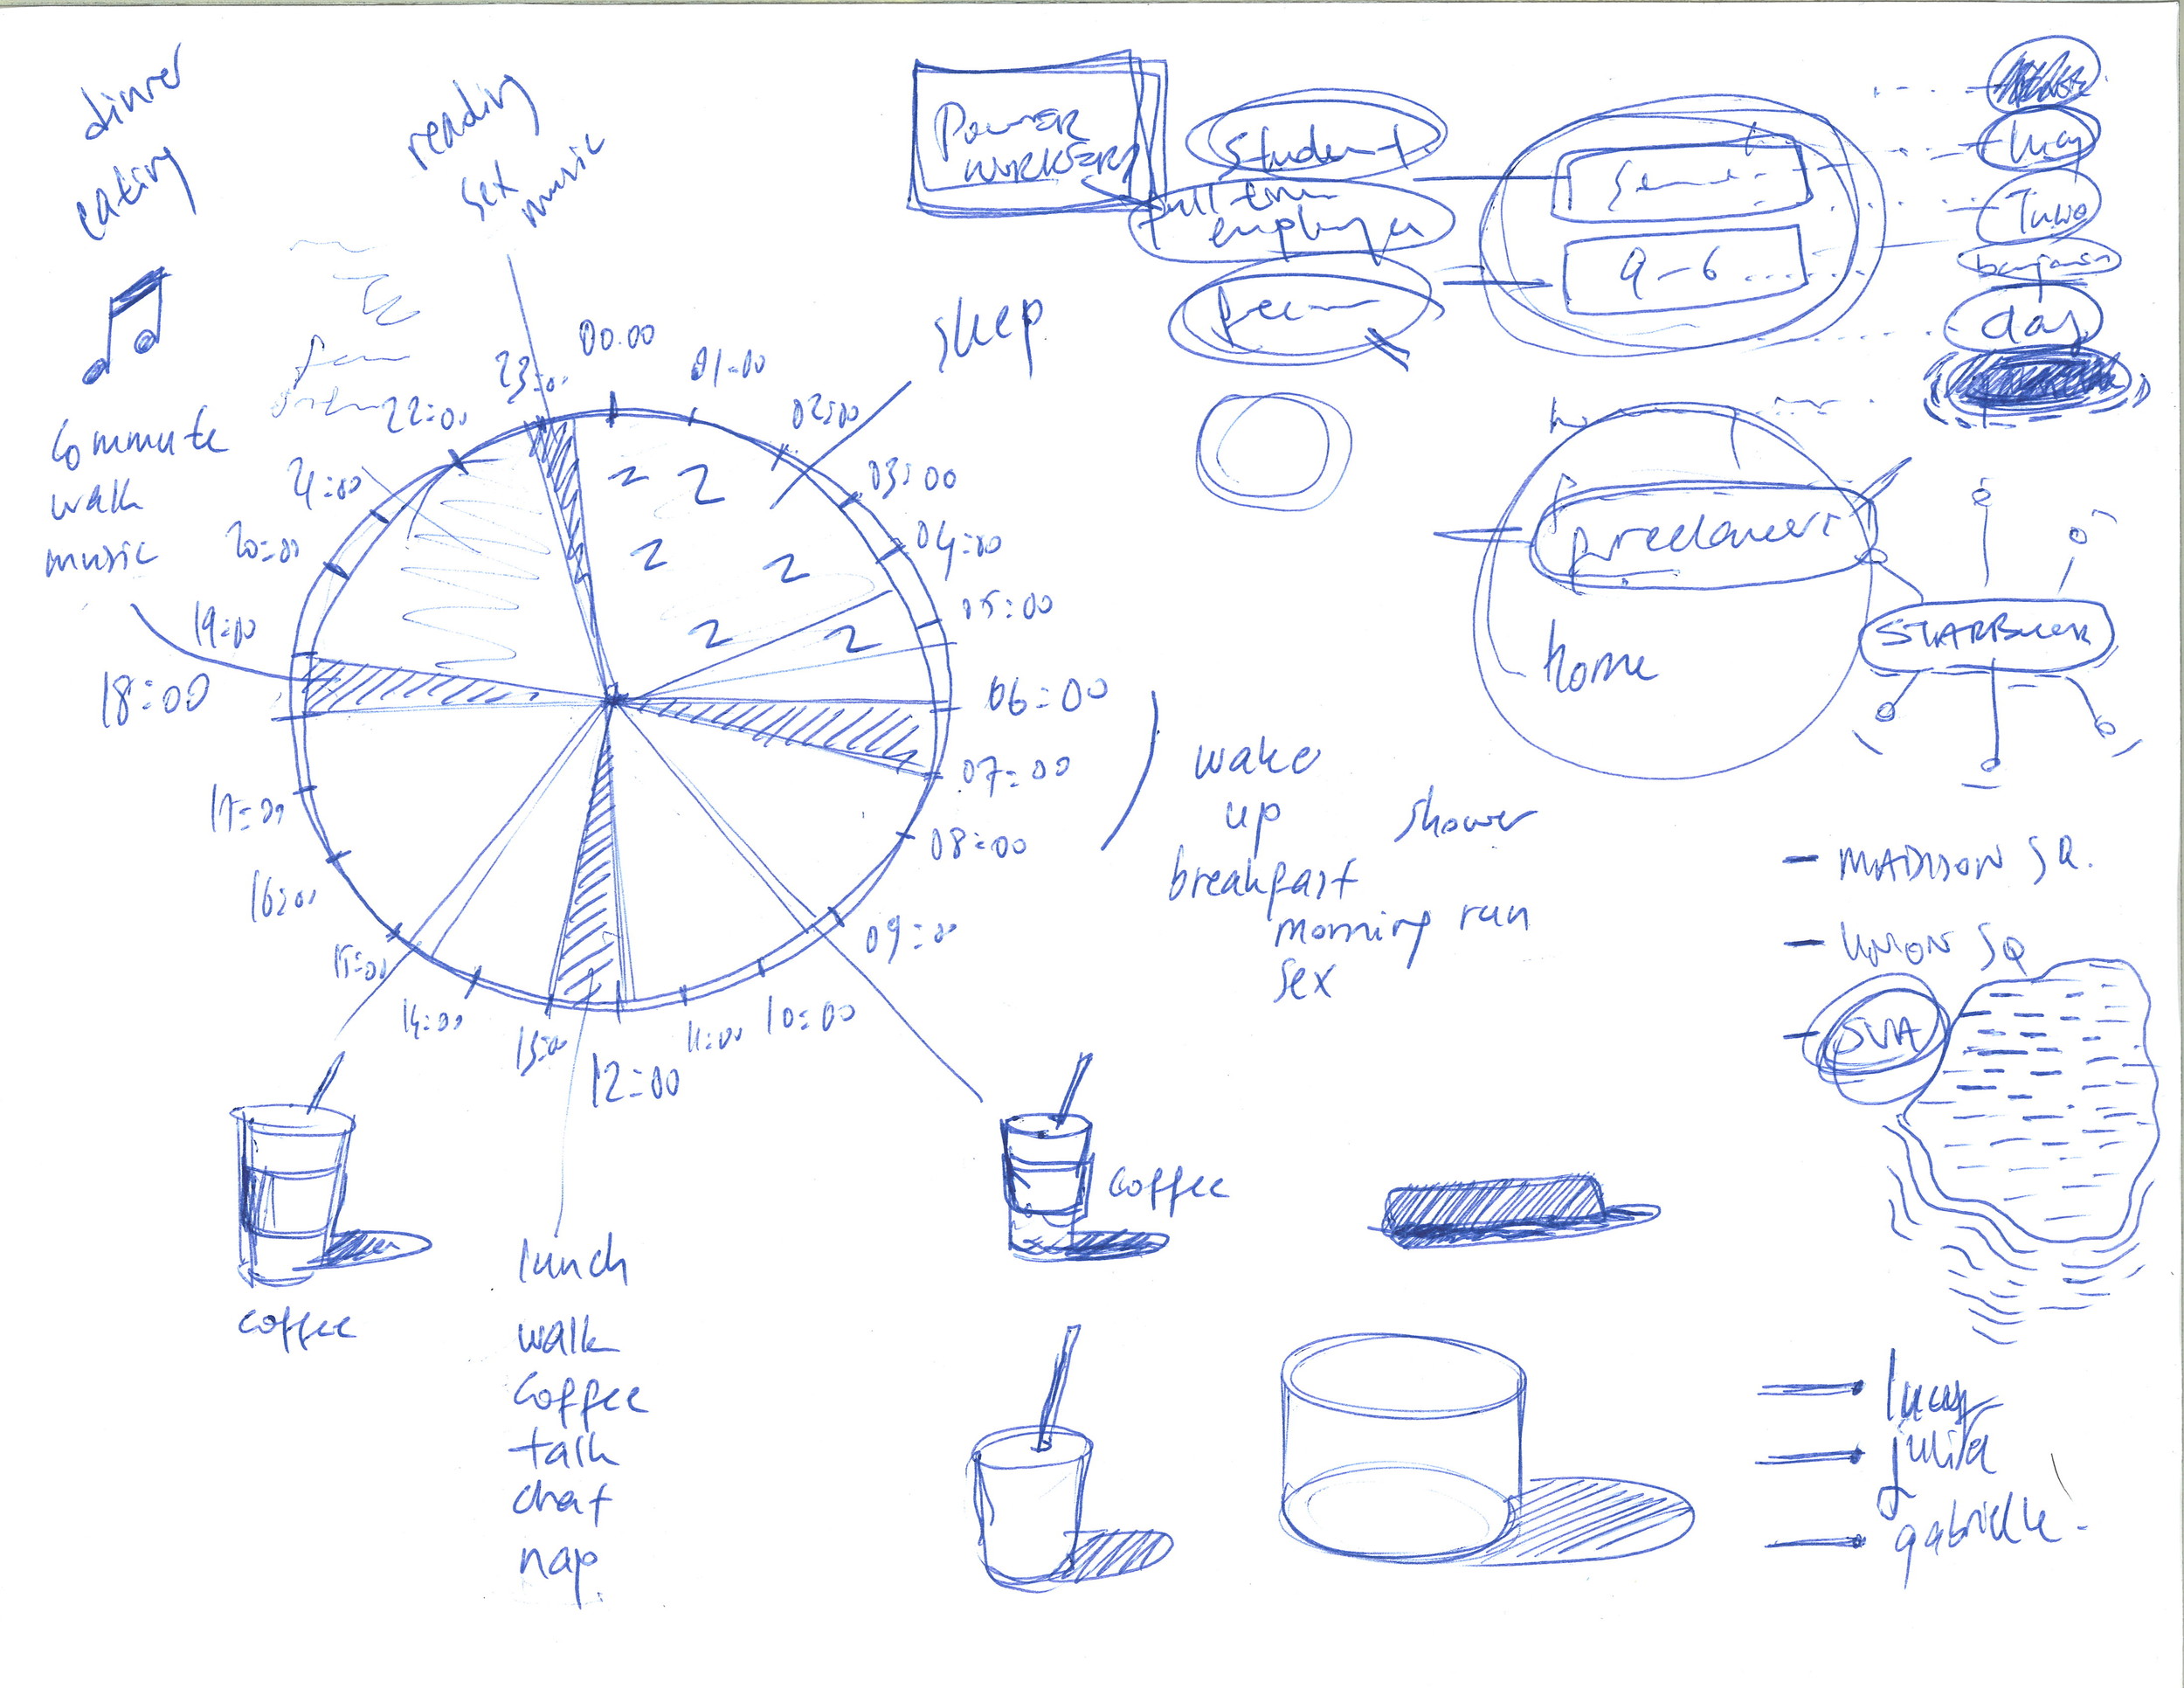 dinner
eating
reading
sex
music
commute
walk
music
sleep
00:00
01:00
02:00
03:00
04:00
05:00
06:00
07:00
08:00
09:00
10:00
11:00
12:00
13:00
14:00
15:00
16:00
17:00
18:00
19:00
20:00
21:00
22:00
23:00
z z
z z
z z
wake
up
shower
breakfast
morning run
sex
coffee
coffee
lunch
walk
coffee
talk
chat
nap.
POWER
WORKERS
student
full time
employer
9-6
day
freelancers
home
STARBUCK
- MADISON SQ.
- UNION SQ
- SVA
lucy
julia
gabrielle